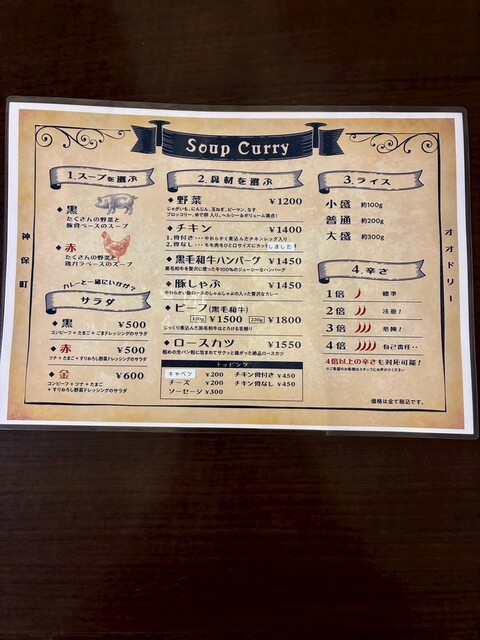 Soup Curry
1.スープを選ぶ
黒
たくさんの野菜と
豚骨ベースのスープ
赤
たくさんの野菜と
鶏ガラベースのスープ
カレーと一緒にいかが?
サラダ
黒 ¥500
コンビーフ+たまご+ごまドレッシングのサラダ
赤 ¥500
ツナ+たまご+すりおろし野菜ドレッシングのサラダ
金 ¥600
コンビーフ+ツナ+たまご
+すりおろし野菜ドレッシングのサラダ
2.具材を選ぶ
野菜 ¥1200
じゃがいも、にんじん、玉ねぎ、ピーマン、なす
ブロッコリー、ゆで卵 入り、ヘルシー&ボリューム満点!
チキン ¥1400
1.骨付き・・・やわらかく煮込んだチキンレッグ入り
2.骨なし・・・モモ肉をひと口サイズにカットしました!
黒毛和牛ハンバーグ ¥1450
黒毛和牛を贅沢に使った牛100%のジューシーなハンバーグ
豚しゃぶ ¥1450
やわらかい豚ロースのしゃぶしゃぶの入った贅沢なカレー
ビーフ(黒毛和牛)
¥1500 220g ¥1800
じっくり煮込んだ黒毛和牛はとろける舌触り
ロースカツ ¥1550
粗めの生パン粉に包まれてサクッと揚がった絶品ロースカツ
トッピング
キャベツ ¥200 チキン骨付き ¥450
チーズ ¥200 チキン骨なし ¥450
ソーセージ ¥300
3.ライス
小盛 約100g
普通 約200g
大盛 約300g
4.辛さ
1倍 標準
2倍 注意!
3倍 危険!
4倍 自己責任・・
4倍以上の辛さも対応可能!
※ご希望のお客様はスタッフにお声かけください
価格は全て税込です。
神保町
オオドリー